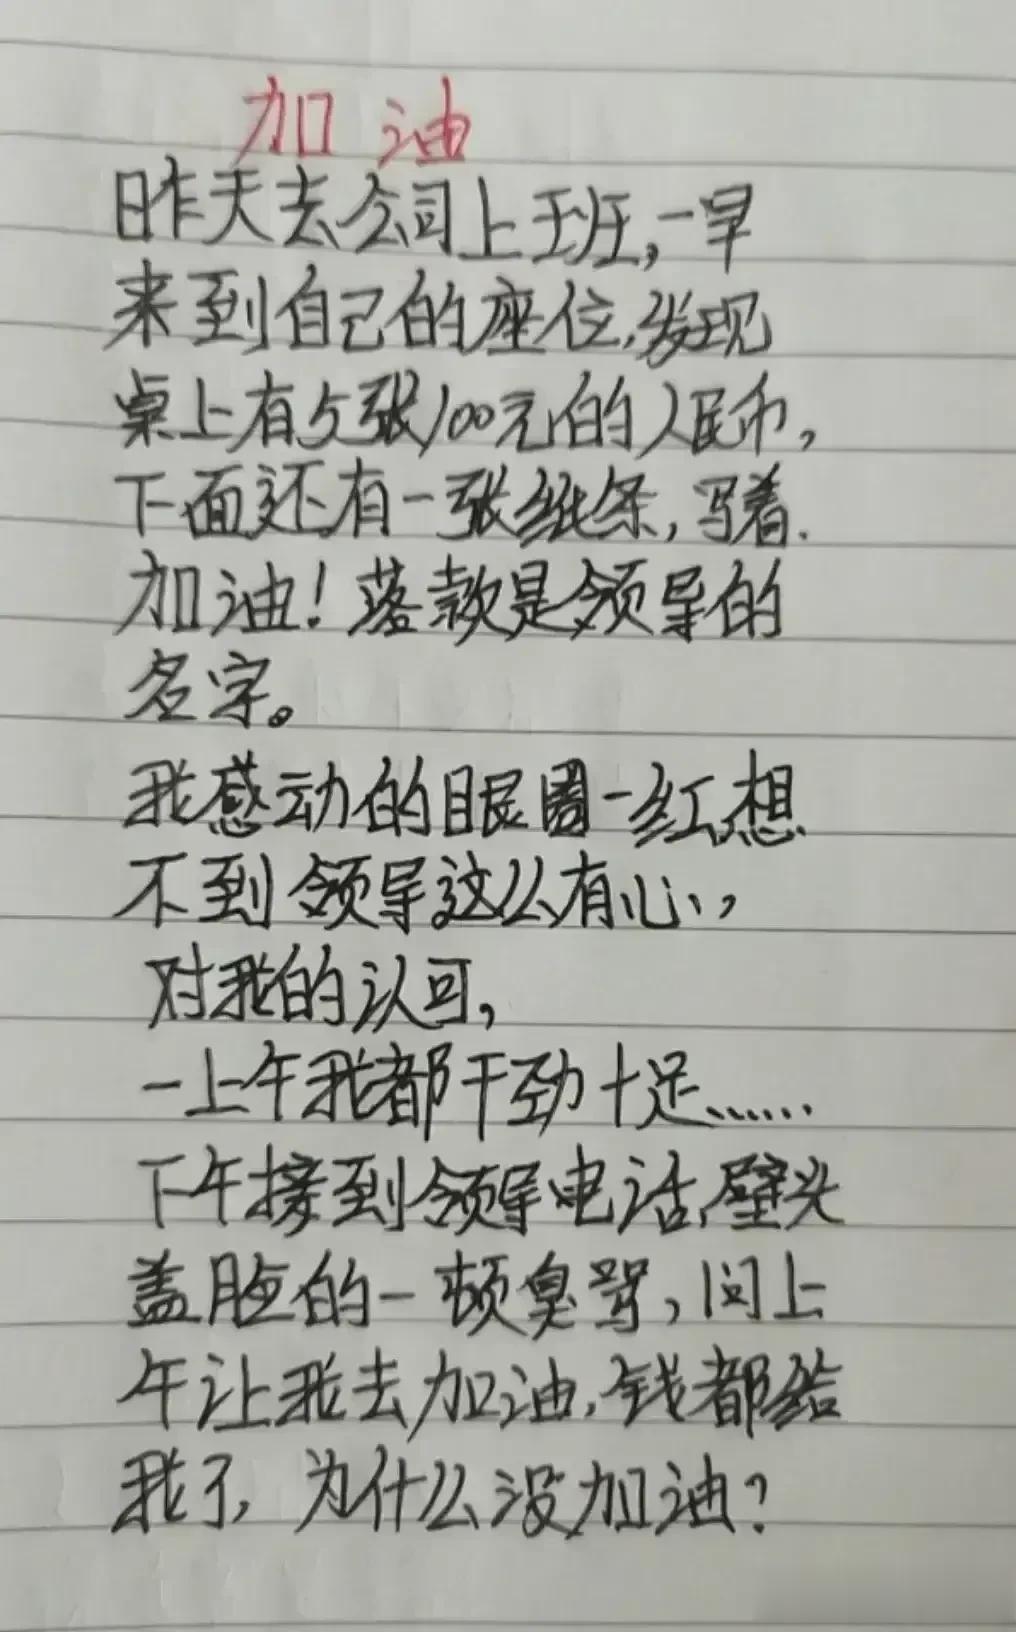 加油
昨天去公司上班,一早
来到自己的座位,发现
桌上有5张100元的人民币,
下面还有一张纸条,写着.
加油!落款是领导的
名字。
我感动的眼圈一红,想
不到领导这么有心,
对我的认可,
一上午我都干劲十足......
下午接到领导电话,壁头
盖脸的一顿臭骂,问上
午让我去加油,钱都给
我了,为什么没加油?